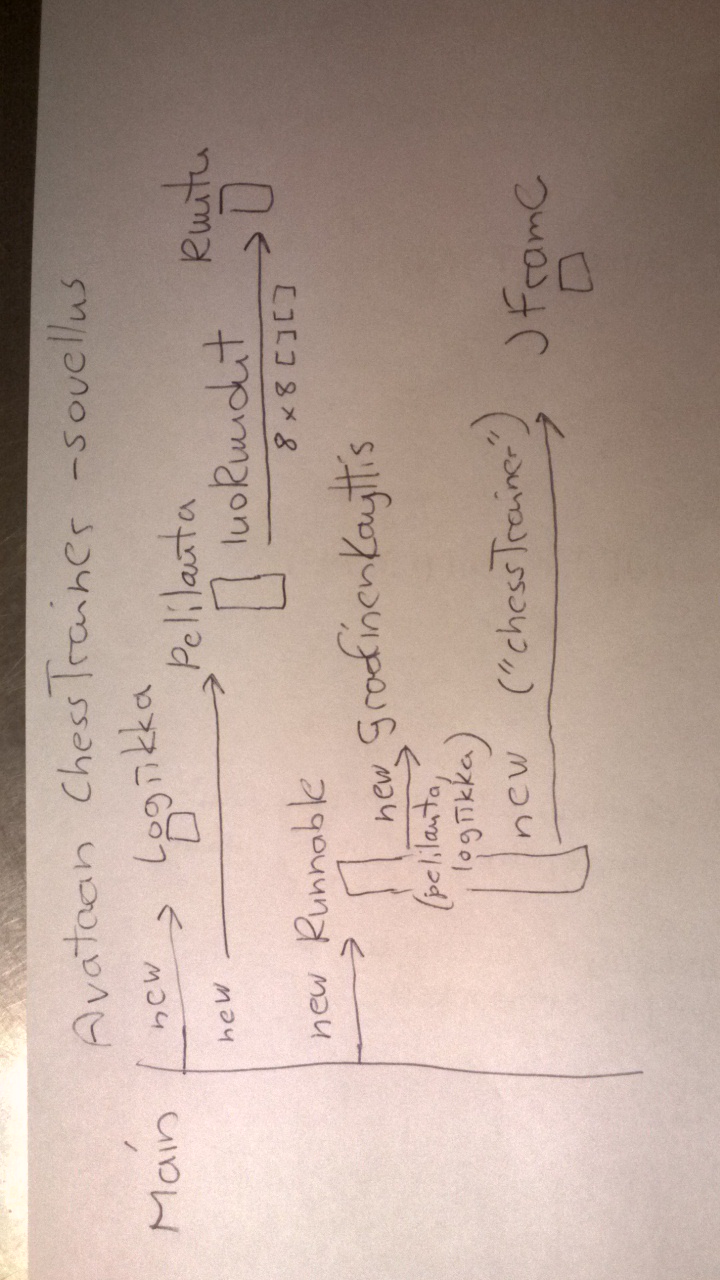 Avataan ChessTrainer -sovellus
Main
new
Logiikka
new
Pelilauta
luoRuudut
8 x 8 [][]
Ruutu
new Runnable
new GraafinenKayttis
(pelilauta,
logiikka)
new ("chessTrainer")
JFrame